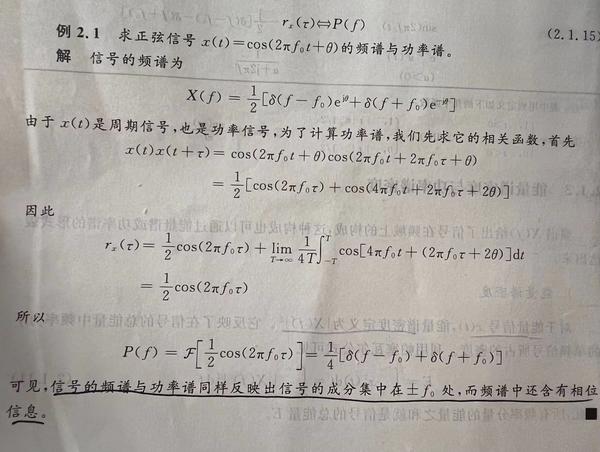 r_x(τ)⇔P(f) (2.1.15)
例 2.1 求正弦信号 x(t)=cos(2πf₀t+θ)的频谱与功率谱。
解 信号的频谱为
X(f) = 1/2[δ(f−f₀)e^{jθ}+δ(f+f₀)e^{-jθ}]
由于 x(t)是周期信号,也是功率信号,为了计算功率谱,我们先求它的相关函数,首先
x(t)x(t+τ) = cos(2πf₀t+θ)cos(2πf₀t+2πf₀τ+θ)
= 1/2[cos(2πf₀τ)+cos(4πf₀t+2πf₀τ+2θ)]
因此
r_x(τ) = 1/2 cos(2πf₀τ) + lim_{T→∞} 1/4T ∫_{-T}^{T} cos[4πf₀t+(2πf₀τ+2θ)]dt
= 1/2 cos(2πf₀τ)
所以
P(f) = ℱ[1/2 cos(2πf₀τ)] = 1/4[δ(f−f₀)+δ(f+f₀)]
可见,信号的频谱与功率谱同样反映出信号的成分集中在±f₀处,而频谱中还含有相位
信息。 ■